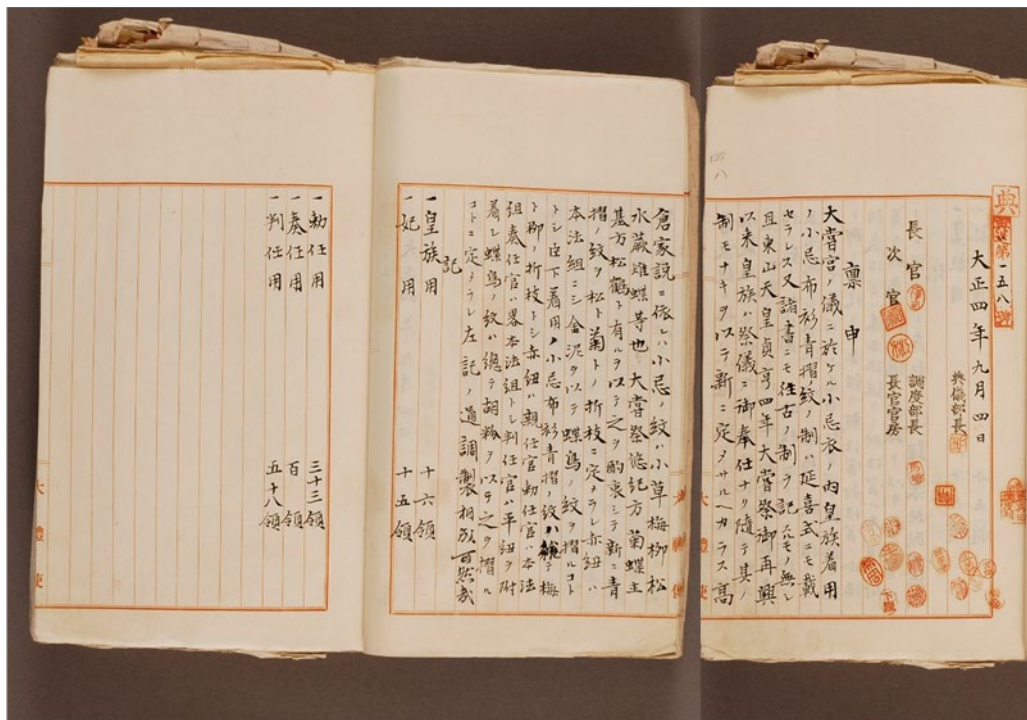 典
第一五八號
大正四年九月四日
典儀部長
長官
調度部長
次官
長官官房
稟申
大嘗宮ノ儀ニ於ケル小忌衣ノ内皇族着用
ノ小忌布衫青摺ノ紋ノ制ハ延喜式ニモ載
セラレス又諸書ニモ往古ノ制ヲ記スルモノ無シ
且東山天皇貞享四年大嘗祭御再興
以来皇族ハ祭儀ニ御奉仕ナク隨テ其ノ
制モナキヲ以テ新ニ定メサルヘカラス高
倉家説ニ依レハ小忌ノ紋ハ小草梅柳松
水蕨雉蝶等也大嘗祭悠紀方菊蝶主
基方松鶴ト有ルヲ以テ之ヲ酌衷シテ新ニ青
摺ノ紋ヲ松ト菊トノ折枝ニ定メラレ赤紐ハ
本法組ニシ金泥ヲ以テ蝶鳥ノ紋ヲ摺ルコト
トシ臣下着用ノ小忌布衫青摺ノ紋ハ総テ梅
ト柳ノ折枝トシ赤紐ハ親任官勅任官ハ本法
組奏任官ハ畧本法組トシ判任官ハ平紐ヲ附
着シ蝶鳥ノ紋ハ總テ胡粉ヲ以テ之ヲ摺ル
コトニ定メラレ左記ノ通調製相成可然哉
記
一皇族用 十六領
一妃用 十五領
一勅任用 三十三領
一奏任用 百領
一判任用 五十八領
大禮使